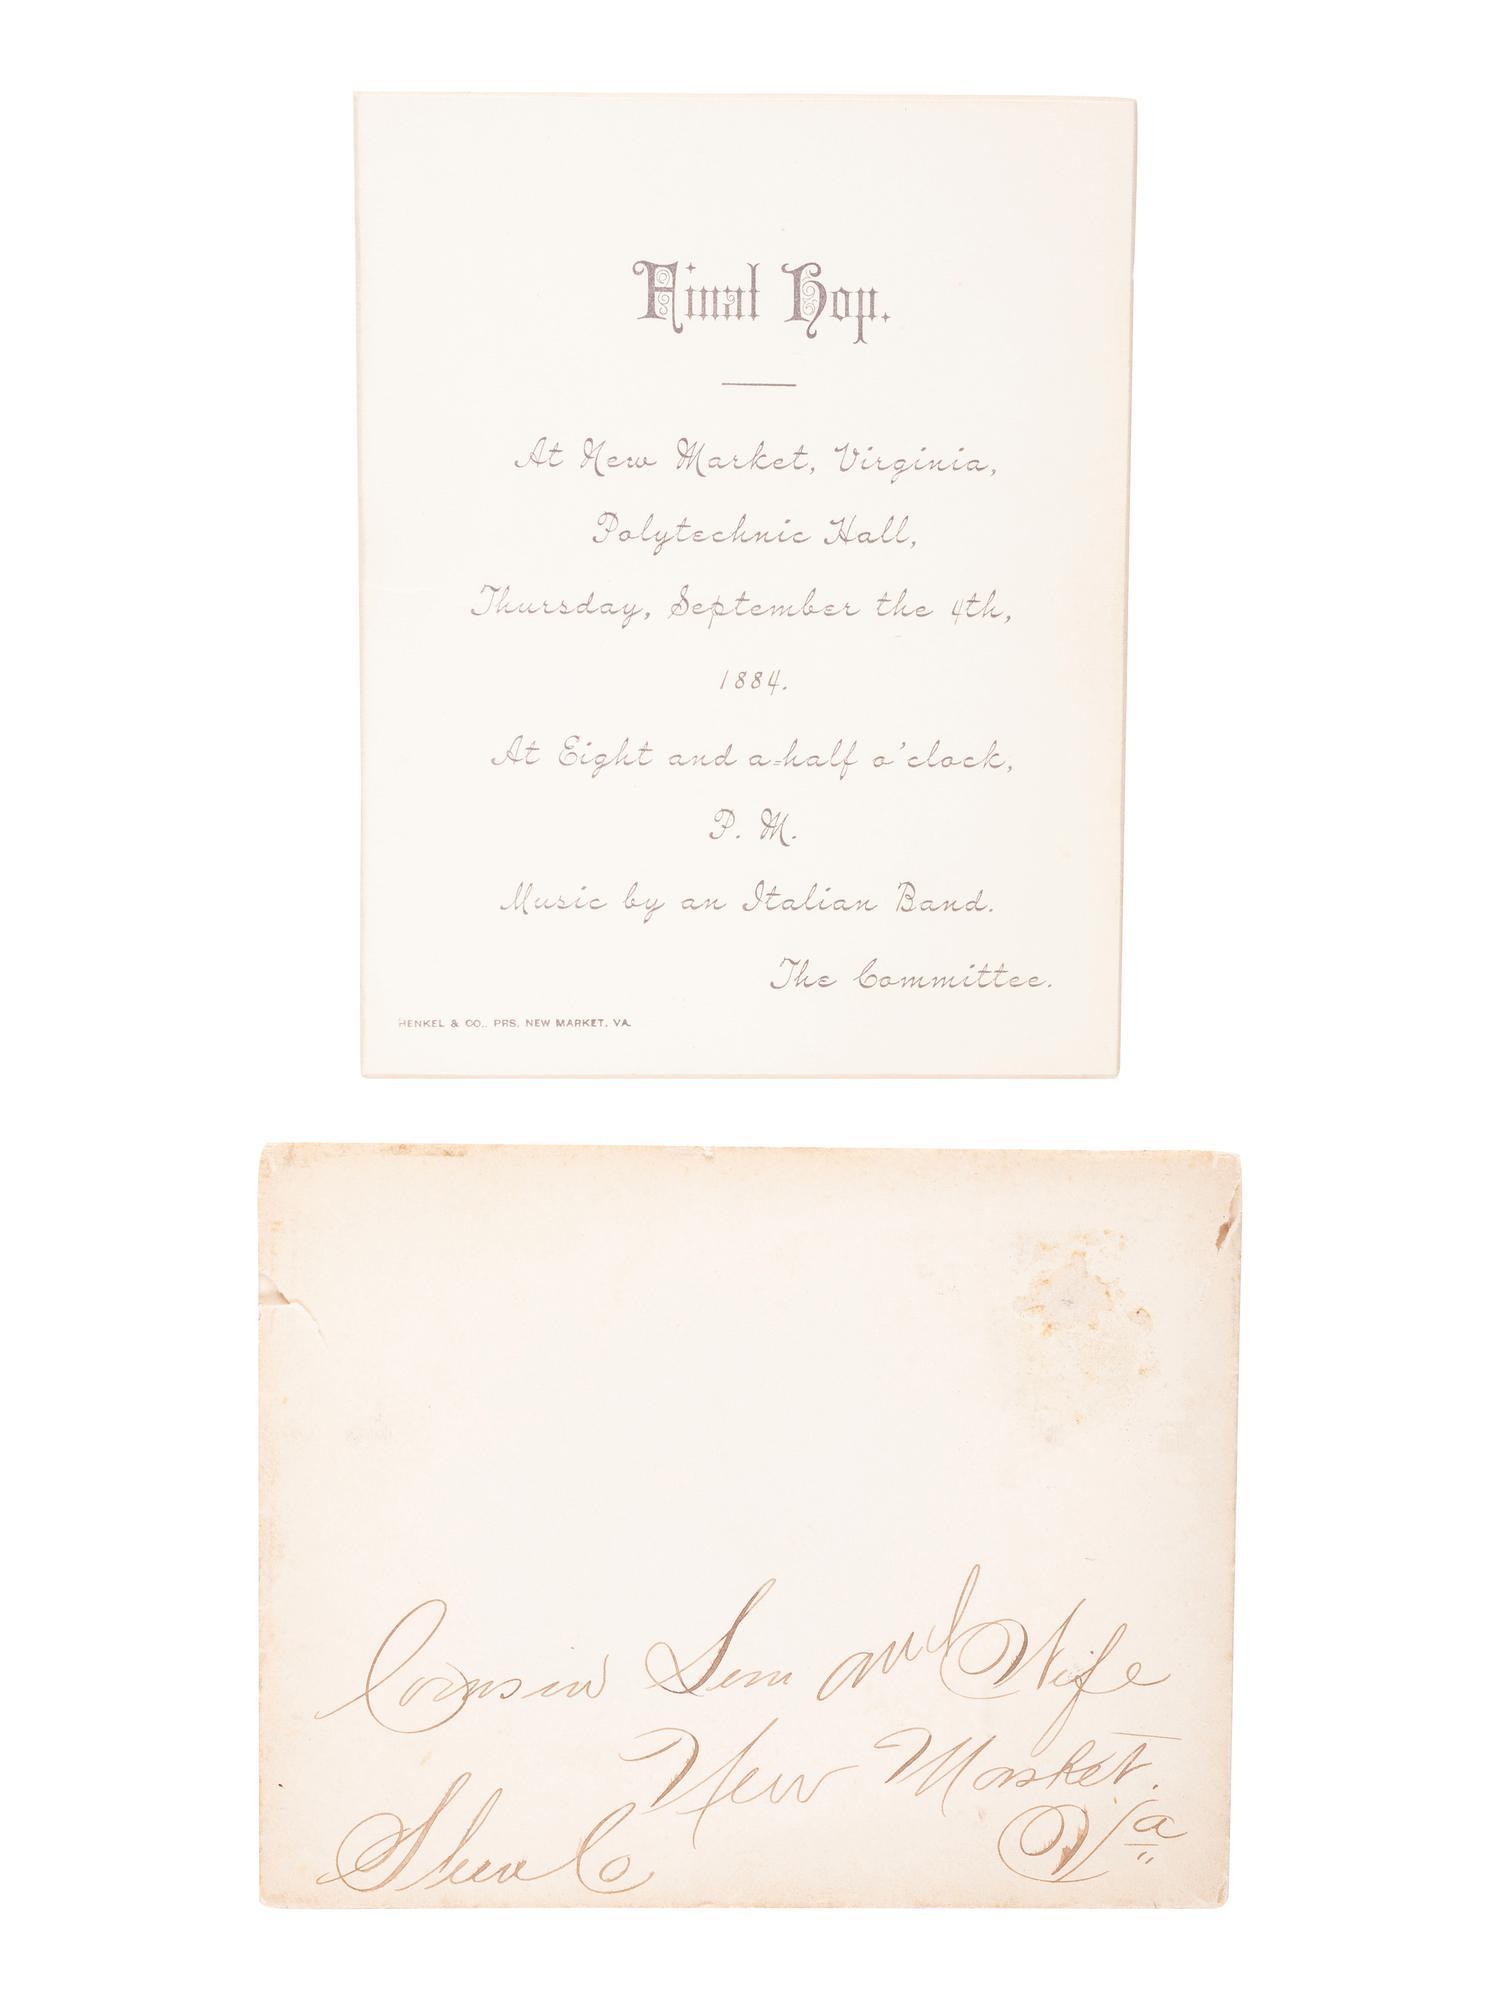 Final Hop.
At New Market, Virginia,
Polytechnic Hall,
Thursday, September the 4th,
1884.
At Eight and a=half o'clock,
P. M.
Music by an Italian Band.
The Committee.
HENKEL & CO., PRS. NEW MARKET, VA.
Cousin Sem and Wife
New Market.
Va
Shen Co